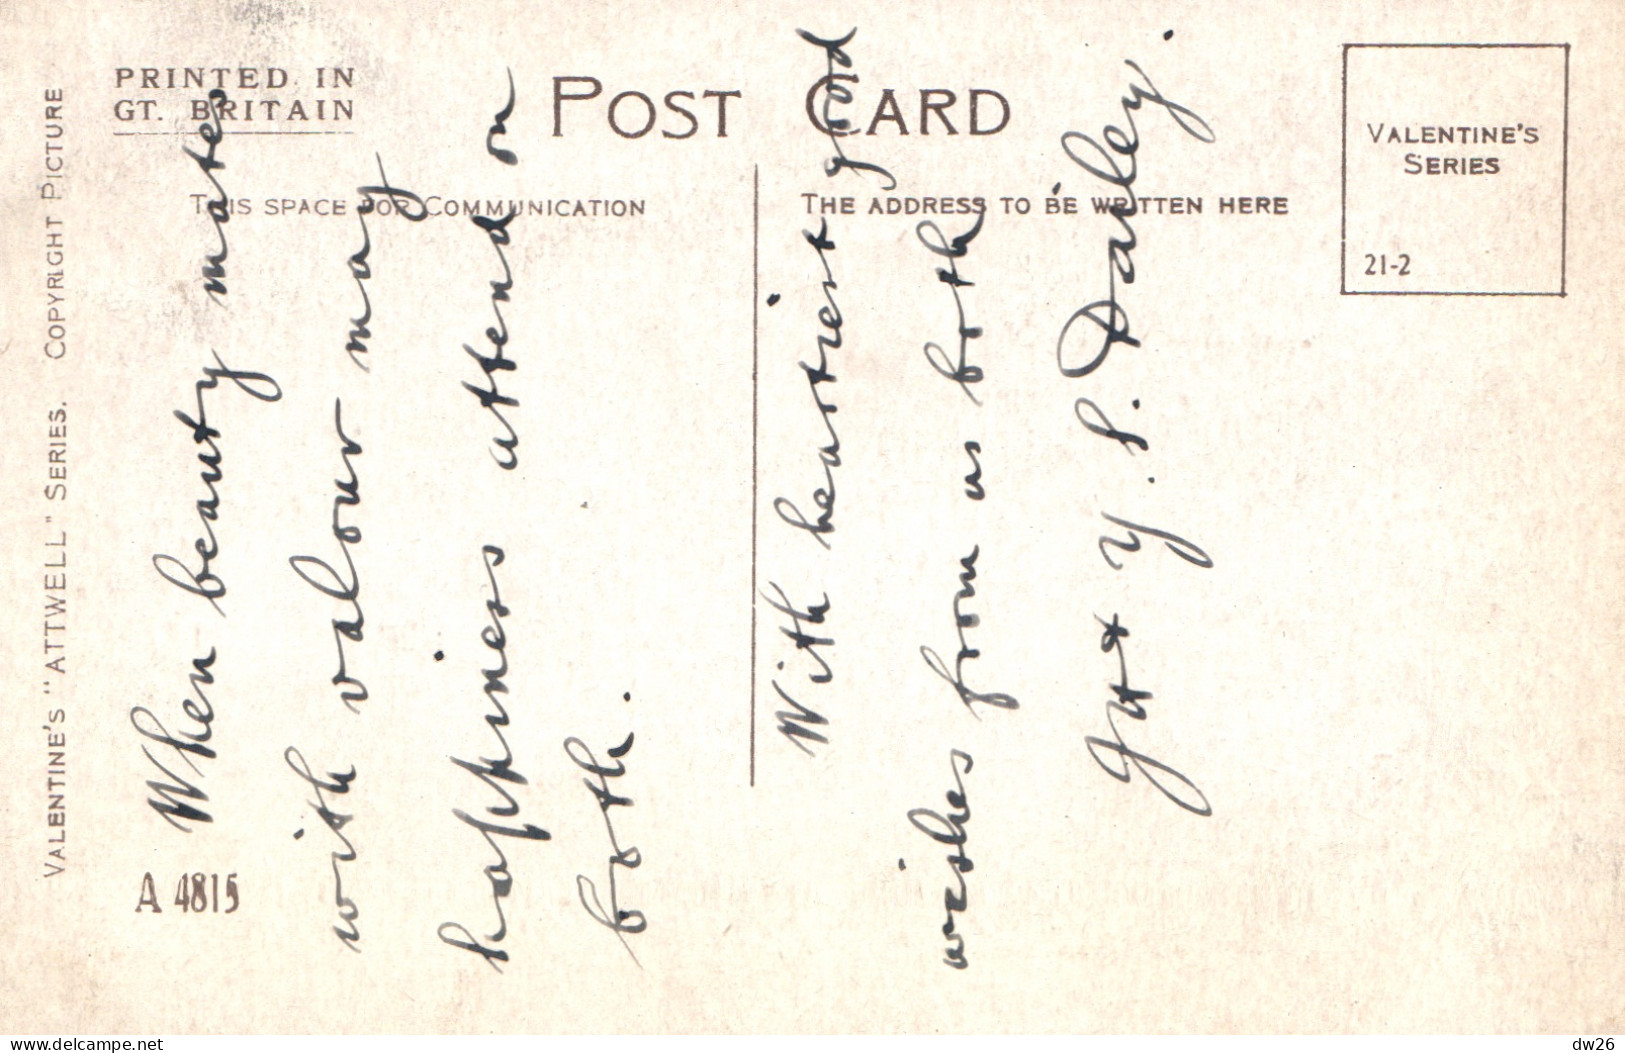 PRINTED IN
GT. BRITAIN
POST CARD
THIS SPACE FOR COMMUNICATION
THE ADDRESS TO BE WRITTEN HERE
VALENTINE'S
SERIES
21-2
VALENTINE'S "ATTWELL" SERIES. COPYRIGHT PICTURE
A 4815
When beauty mates
with valour may
happiness attend on
both.
With heartiest good
wishes from us both
Y. S. Dailey.
www.delcampe.net
dw26